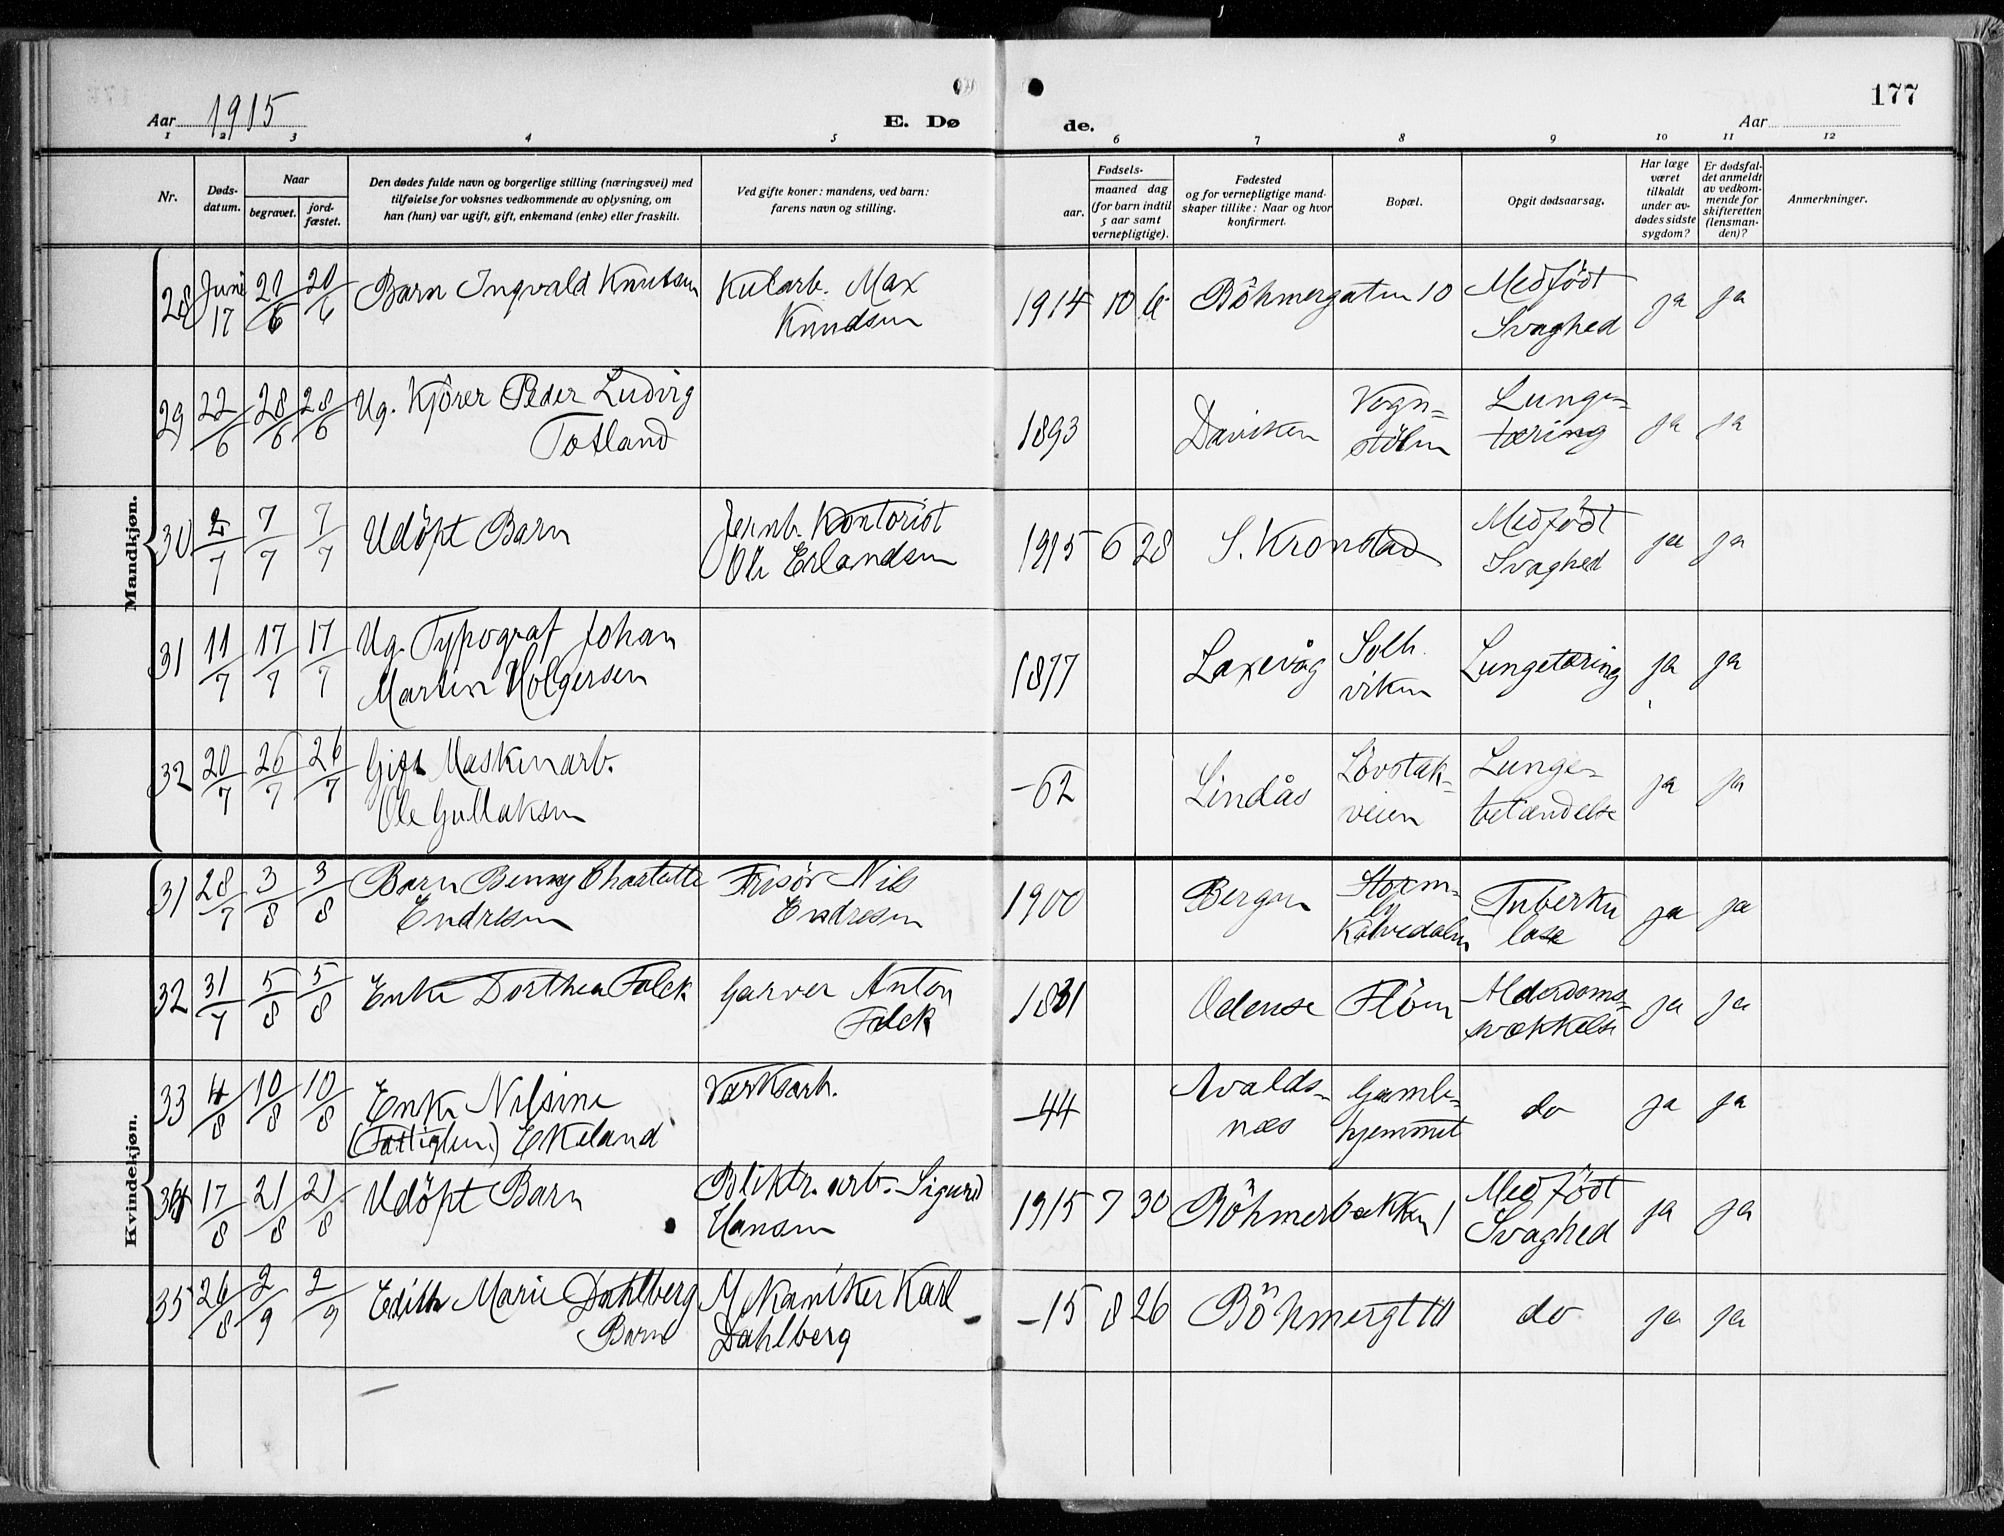 177
Aar 1915
E. Døde.
Aar
1 2 3 4 5 6 7 8 9 10 11 12
Nr.
Døds-
datum.
Naar
begravet.
jord-
fæstet.
Den dødes fulde navn og borgerlige stilling (næringsvei) med
tilføielse for voksnes vedkommende av oplysning, om
han (hun) var ugift, gift, enkemand (enke) eller fraskilt.
Ved gifte koner: mandens, ved barn:
farens navn og stilling.
Fødsels-
aar.
maaned dag
(for barn indtil
5 aar samt
vernepligtige).
Fødested
og for vernepligtige mand-
skaper tillike: Naar og hvor
konfirmert.
Bopæl.
Opgit dødsaarsag.
Har læge
været
tilkaldt
under av-
dødes sidste
sygdom?
Er dødsfal-
det anmeldt
av vedkom-
mende for
skifteretten
(lensman-
den)?
Anmerkninger.
Mandkjøn.
28 Juni 17 21/6 20/6 Barn Ingvald Knutsen Kularb. Max
Knudsen 1914 10 6 Böhmergaten 10 Medfödt
Svaghed ja ja
29 22/6 28/6 28/6 Ug. Kjörer Peder Ludvig
Totland 1893 Daviken Vogn=
stölen Lunge=
tæring ja ja
30 2/7 7/7 7/7 Udöpt Barn Jernb. Kontorist
Ole Erlandsen 1915 6 28 S. Kronstad Medfödt
Svaghed ja ja
31 11/7 17/7 17/7 Ug. Typograf Johan
Martin Holgersen 1877 Laxevåg Solh.
viken Lungetæring ja ja
32 20/7 26/7 26/7 Gift Maskinarb.
Ole Gullaksen -62 Lindås Lövstak-
veien Lunge=
betændelse ja ja
Kvindekjøn.
31 28/7 3/8 3/8 Barn Benny Charlotte
Endresen Frisör Nils
Endresen 1900 Bergen Storm=
by
Kalvedalen Tuberku
lose ja ja
32 31/7 5/8 5/8 Enke Dorthea Falck Garver Anton
Falck 1831 Odense Flöen Alderdoms=
svækkelse ja ja
33 4/8 10/8 10/8 Enke Nilsine
(Fattiglem.) Ekeland Værksarb. -44 Avalds=
næs Gamle=
hjemmet do ja ja
34 17/8 21/8 21/8 Udöpt Barn Bliktr. arb. Sigurd
Hansen 1915 7 30 Böhmerbakken 1 Medfödt
Svaghed ja ja
35 26/8 2/9 2/9 Edith Marie Dahlberg
Barn Mekaniker Karl
Dahlberg -15 8 26 Böhmergt 10 do ja ja